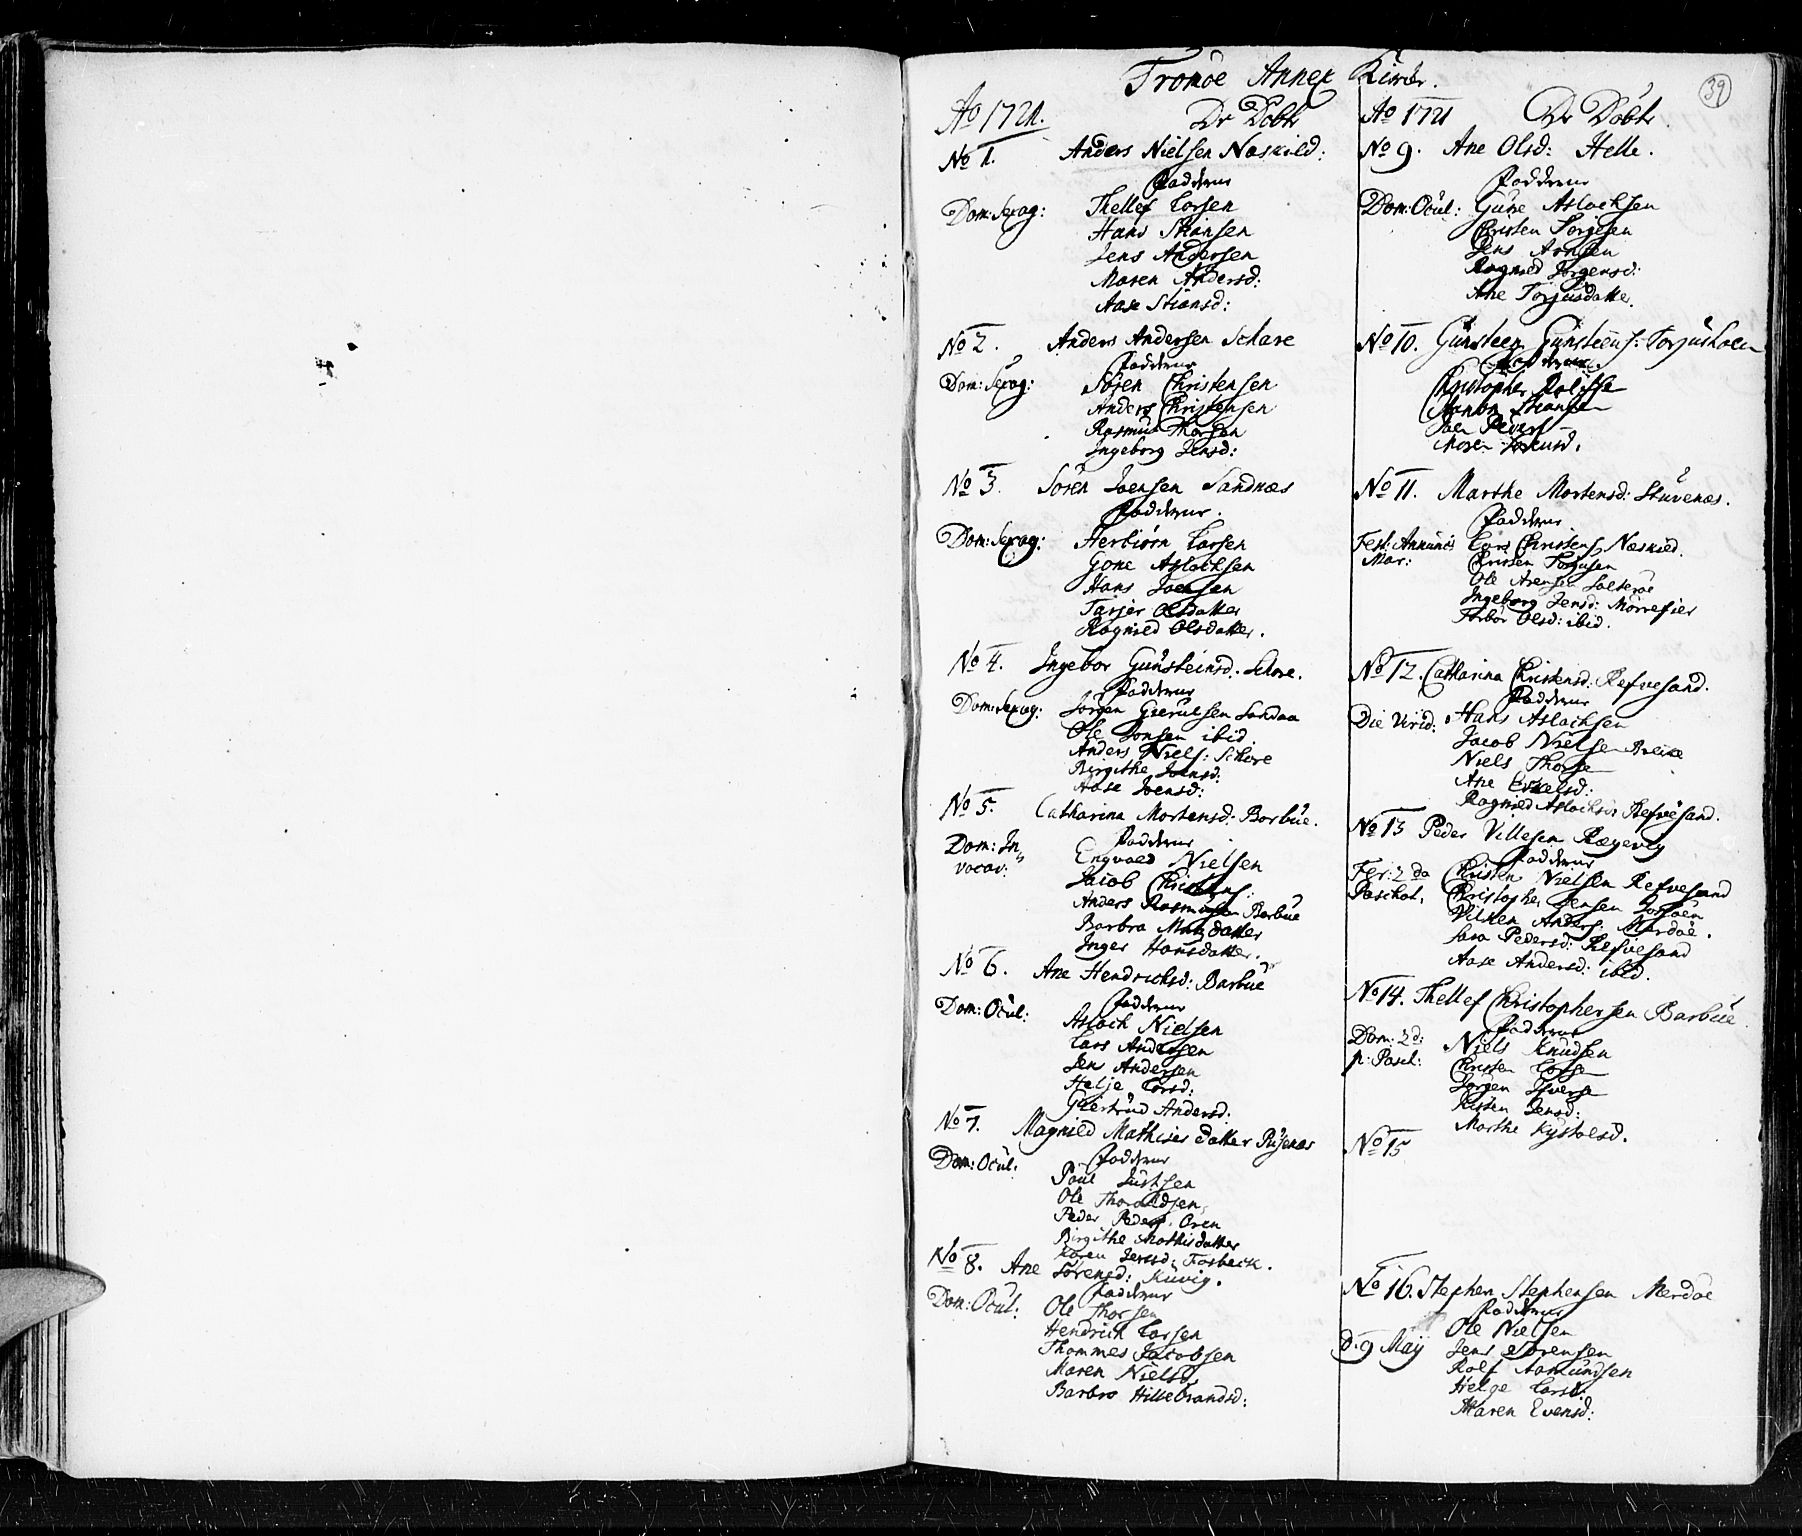 Tromöe Annex Kircke.
39
Ao 1721. De Döbte
No 1. Anders Nielsen Næskild:
Fadderne
Dom: Sexag: Thellef Larsen
Hans Stiansen
Jens Andersen
Maren Andersd:
Aase Stiansd:
No 2. Anders Andersen Schare
Fadderne
Dom: Sexag: Sören Christensen
Anders Christensen
Rasmus Thorsen
Ingeborg Jensd:
No 3. Sören Joensen Sandnæs
Fadderne.
Dom: Sexag: Herbiörn Larsen
Gone Aslachsen
Hans Joensen
Tarjer Olsdatter
Ragnild Olsdatter.
No 4. Ingebor Günsteinsd. Schare.
Fadderne
Dom: Sexag: Jörgen Gierulsen Sandaa
Ole Jonsen ibid
Anders Niels: Schare
Birgithe Joensd:
Aase Joensd:
No 5. Catharina Mortensd: Barbüe.
Fadderne
Dom: In Engvold Nielsen
vocav: Jacob Christens:
Anders Rasmusen Barbüe
Barbra Matzdatter
Inger Hansdatter.
No 6. Ane Hendrichsd: Barbüe
Fadderne
Dom: Ocül: Aslach Nielsen
Lars Andersen
Jens Andersen
Helje Larsd:
Giertrüd Andersd:
No 7. Magnild Mathisdatter Püsenæs
Fadderne
Dom: Ocül: Poül Jüstsen
Ole Thoraldsen
Peder Peders. Oren
Birgithe Mathisdatter
Karen Jensd: Fosbeck.
No 8. Ane Sörensd: Küvig.
Fadderne
Dom: Ocül: Ole Thorsen
Hendrich Larsen
Thommes Jacobsen
Maren Nielsd:
Barbro Hillebrandsd:
Ao 1721 De Döbte
No 9. Ane Olsd: Helle.
Fadderne
Dom: Ocül: Güne Aslachsen
Christen Torgesen
Jens Arnsen
Ragnild Jörgensd:
Ane Torjüsdatter.
No 10. Günsteen Günsteens: Torjüsholm
Fadderne
Christopher
Stiansen
Joen Peders
Maren
No 11. Marthe Mortensd: Stüvenæs.
Fadderne
Fest: Annunc: Lars Christens Næskild.
Mar: Christen Torjusen
Ole Arensen Salteröe
Ingeborg Jensd: Mörrefier
Torbor Olsd: ibid.
No 12. Catharina Christensd: Refvesand.
Fadderne
Die Virid: Hans Aslachsen
Jacob Nielsen
Niels Thorse
Ane
Ragnild Aslachsd: Refvesand.
No 13 Peder Villesen Rægevig
Fadderne
Fer: 2da Christen Nielsen Refvesand
Paschat. Christopher Jensen
Vilken Anders: Merdöe.
Sara Pedersd: Refvesand
Aase Andersd: ibid.
No 14. Thellef Christophersen Barbüe
Fadderne
Dom: 2d: Niels Knüdsen
p: Pasch: Christen Larse
Jörgen Iverse
Kisten Jensd:
Marthe Kystolsd.
No 15
No 16. Stephen Stephensen Merdöe
Fadderne
Ole Nielsen
d. 9 Maij Jens Sörensen
Rolf Aamündsen
Helge Larsd:
Maren Evensd: